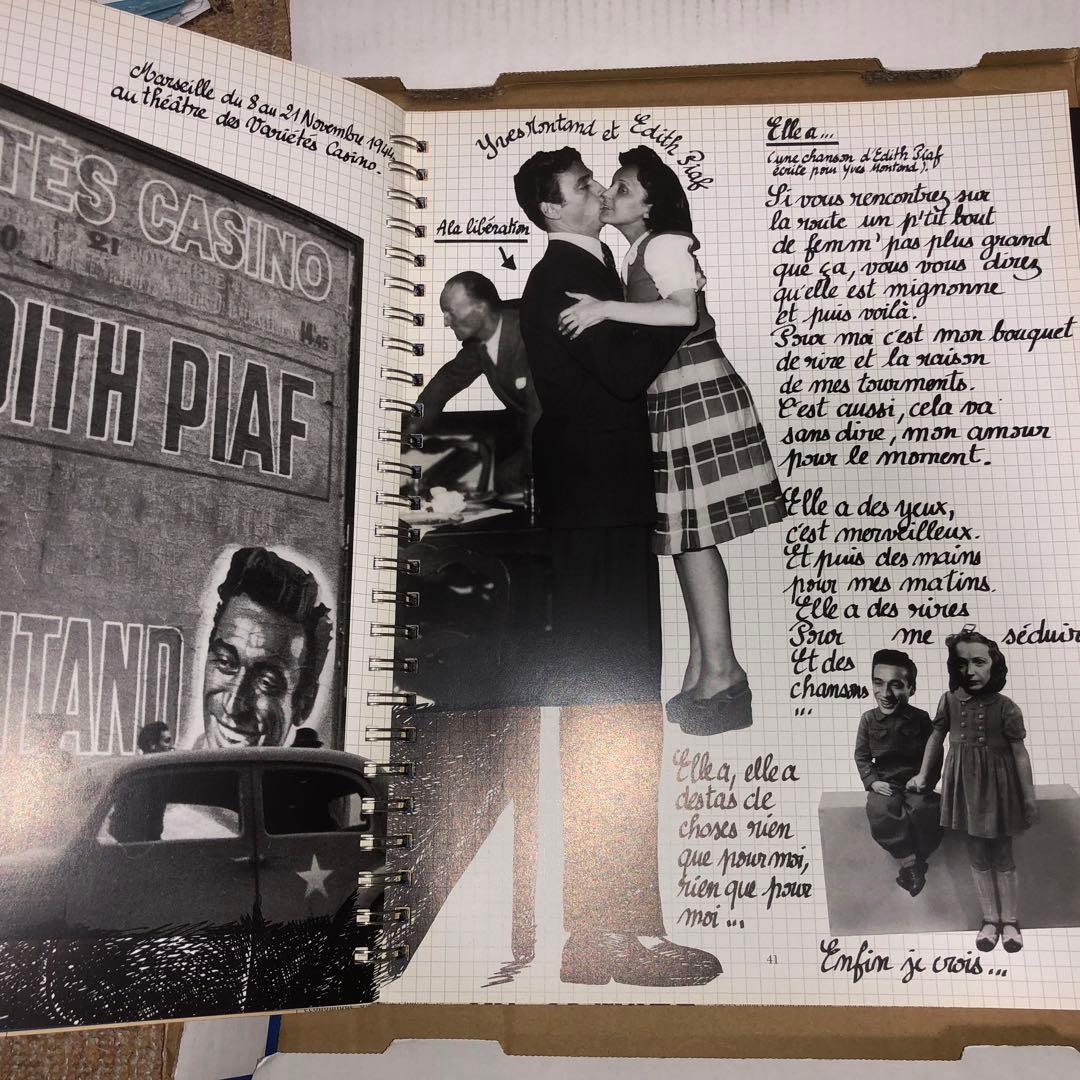 Marseille du 8 au 21 Novembre 1944
au théâtre des Variétés Casino.
TES CASINO
21
DITH PIAF
NTAND
Yves Montand et Edith Piaf
A la libération
Elle a...
(une chanson d'Edith Piaf
écrite pour Yves Montand).
Si vous rencontrez sur
la route un p'tit bout
de femm' pas plus grand
que ça, vous vous direz
qu'elle est mignonne
et puis voilà.
Pour moi c'est mon bouquet
de rire et la raison
de mes tourments.
C'est aussi, cela va
sans dire, mon amour
pour le moment.
Elle a des yeux,
c'est merveilleux.
Et puis des mains
pour mes matins.
Elle a des rires
Pour me séduir
Et des
chansons
...
Elle a, elle a
des tas de
choses rien
que pour moi,
rien que pour
moi...
Enfin je crois...
41